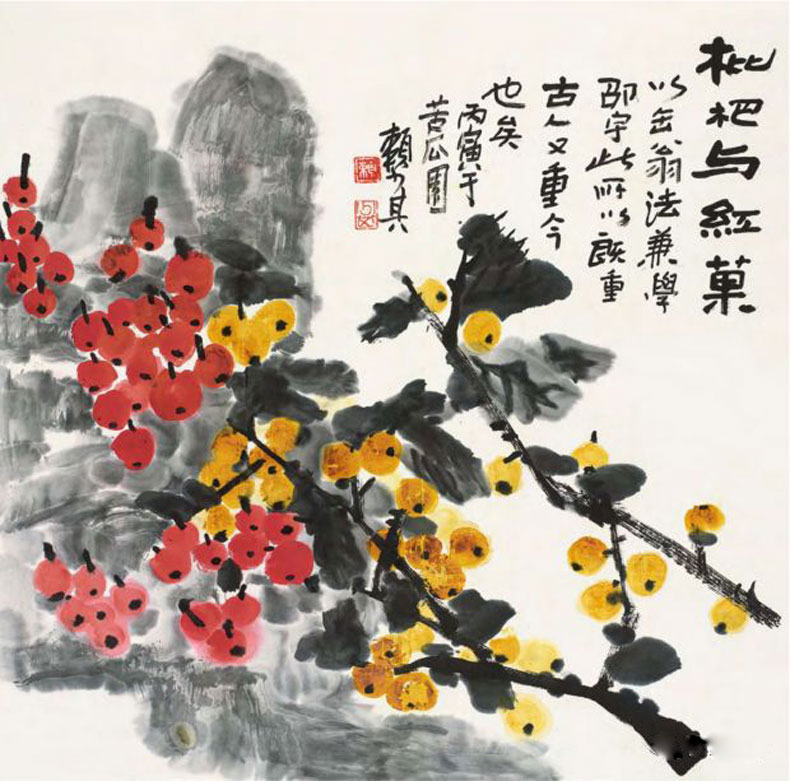 枇杷与紅菓
以缶翁法兼學
邵宇此所以既重
古人又重今
也矣
丙寅于
苦瓜園
賴少其